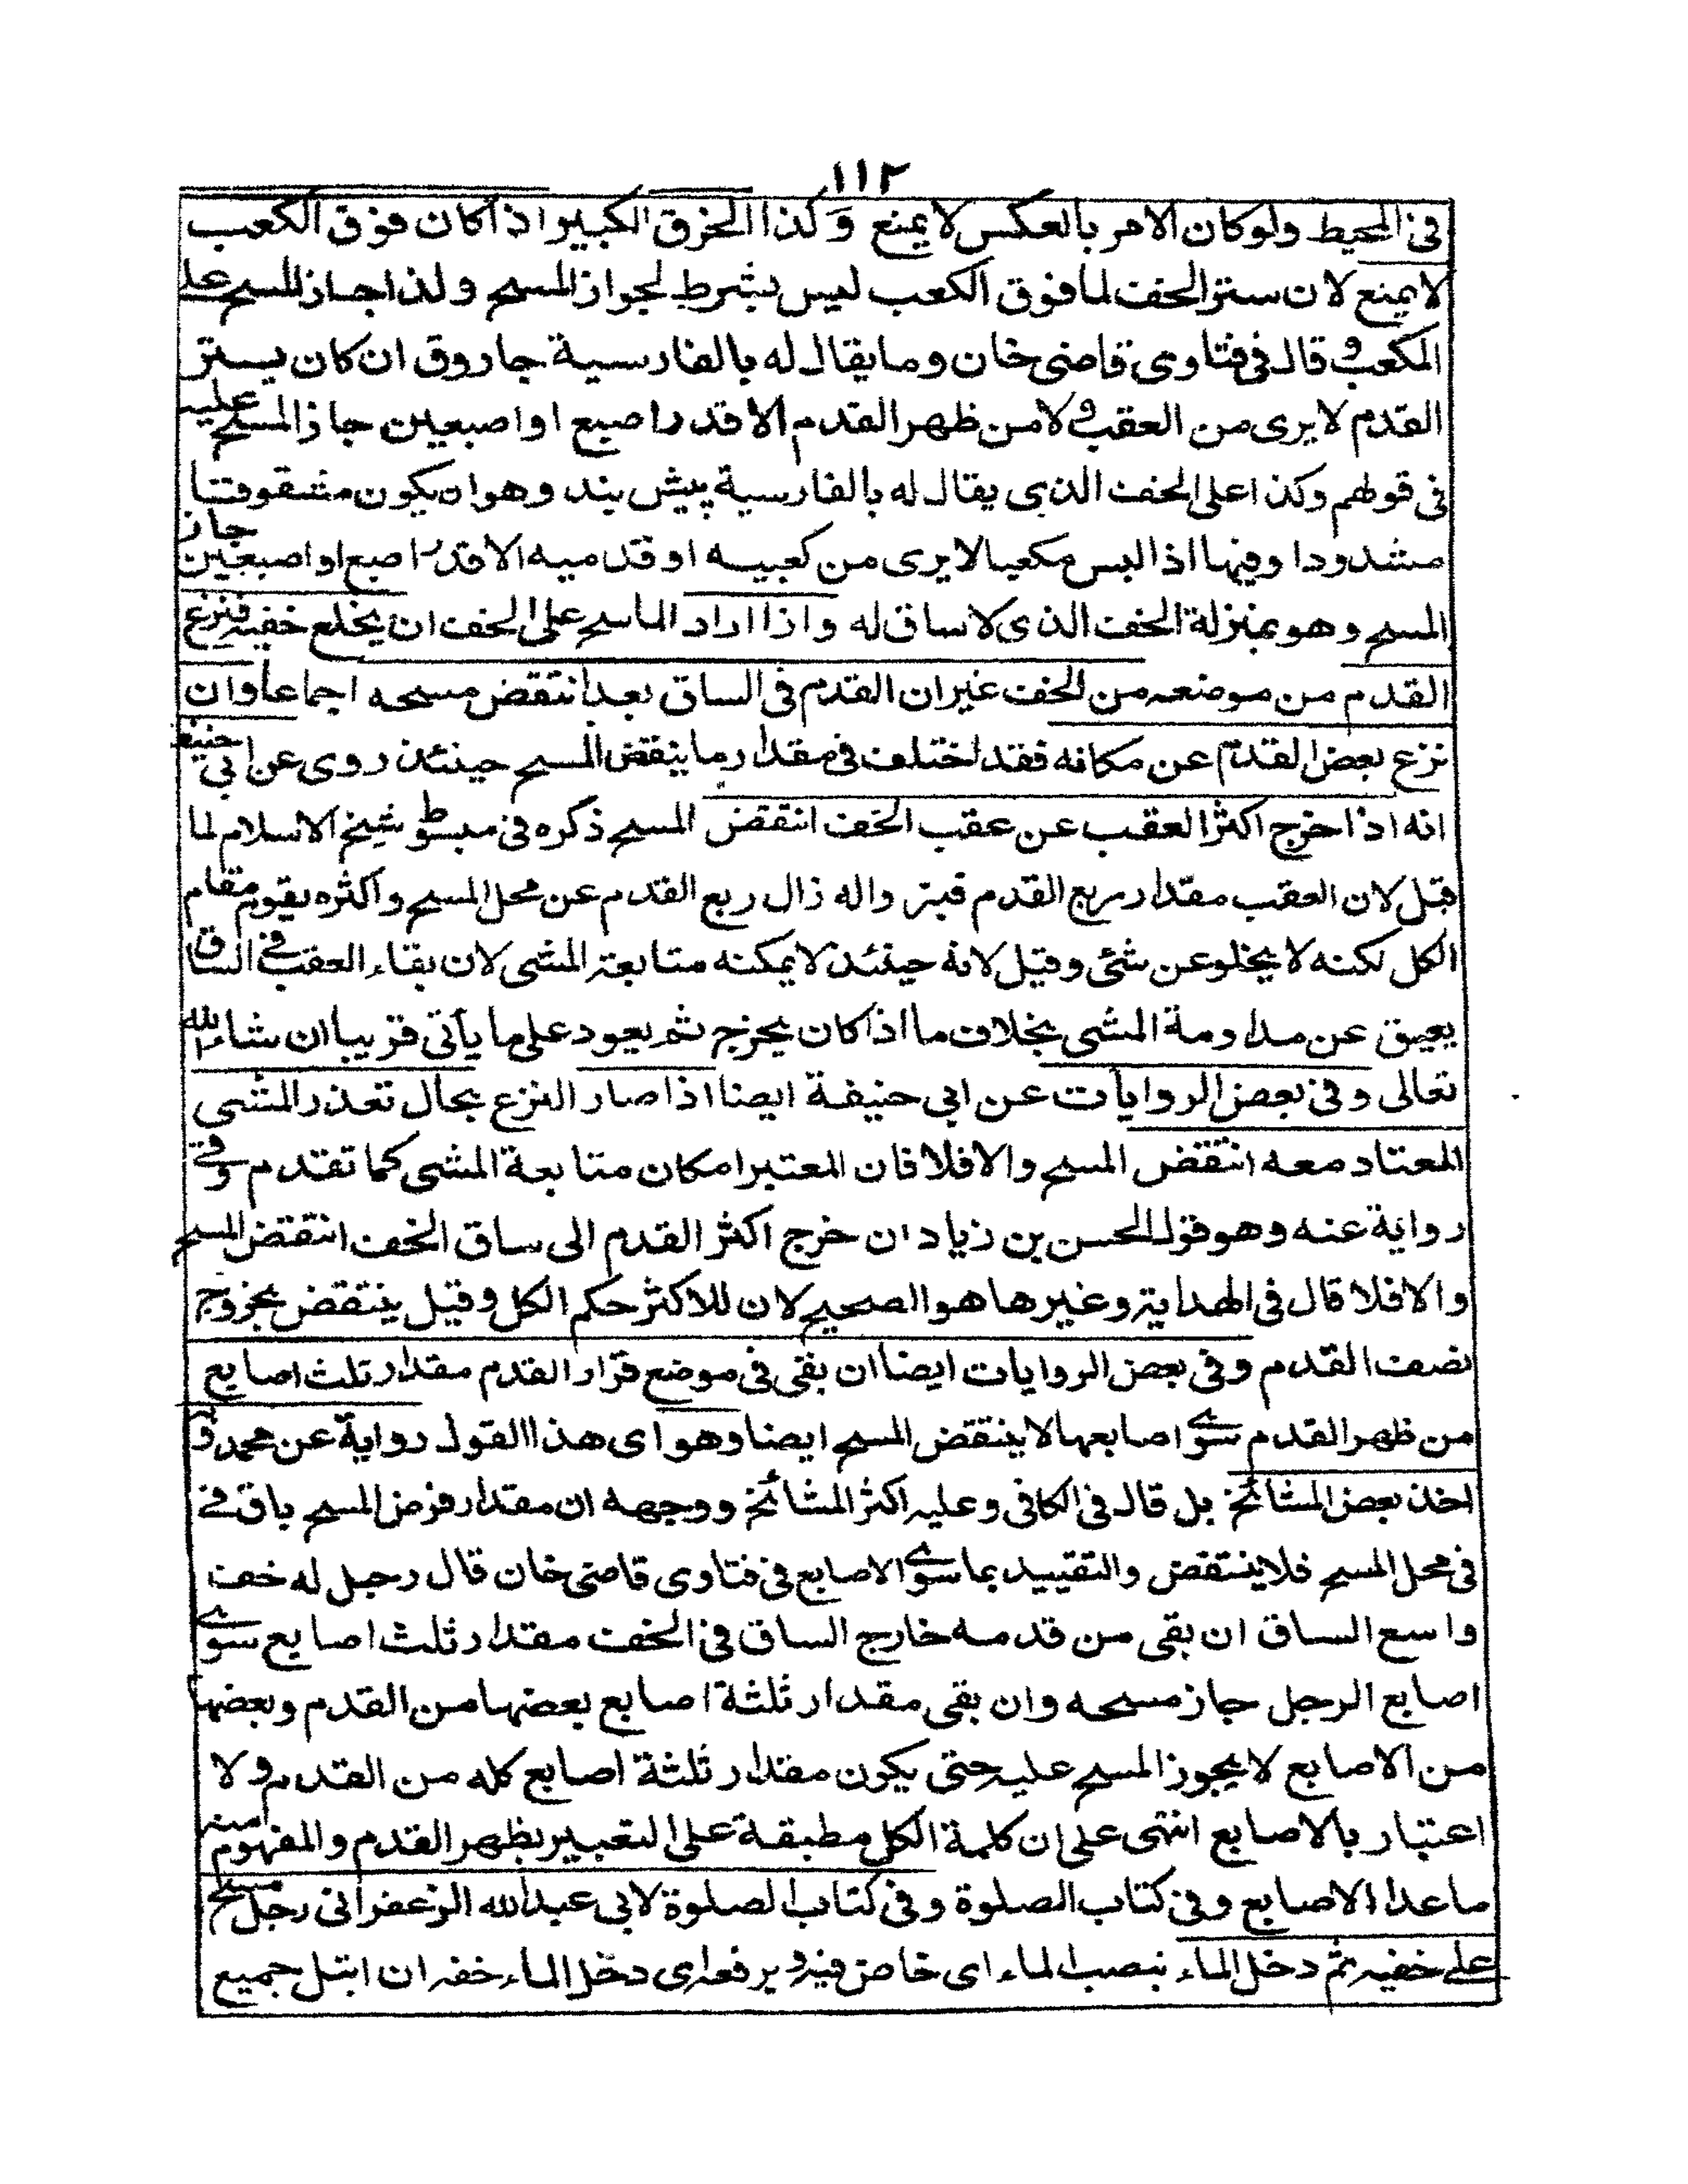 ١١٢
فى المحيط ولو كان الامر بالعكس لا يمنع وكذا الخرق الكبير اذا كان فوق الكعب
لا يمنع لان ستر الخف لما فوق الكعب ليس بشرط لجواز المسح ولذا جاز المسح على
المكعب و قال فى فتاوى قاضى خان وما يقال له بالفارسية جاروق ان كان يستر
القدم لا يرى من العقب و لا من ظهر القدم الا قدر اصبع او اصبعين جاز المسح عليه
فى قولهم وكذا على الخف الذى يقال له بالفارسية پيش بند وهو ان يكون مشقوقا
مشدودا وفيها اذا لبس مكعبا لا يرى من كعبيه او قدميه الا قدر اصبع او اصبعين جاز
المسح وهو بمنزلة الخف الذى لا ساق له واذا اراد الماسح على الخف ان يخلع خفيه فنزع
القدم من موضعه من الخف غير ان القدم فى الساق بعد انتقض مسحه اجماعا وان
نزع بعض القدم عن مكانه فقد اختلف فى مقدار ما ينقض المسح حينئذ روى عن ابى حنيفة
انه اذا خرج اكثر العقب عن عقب الخف انتقض المسح ذكره فى مبسوط شيخ الاسلام لما
قيل لان العقب مقدار ربع القدم فبزواله زال ربع القدم عن محل المسح واكثره يقوم مقام
الكل لكنه لا يخلو عن شئ وقيل لانه حينئذ لا يمكنه متابعة المشى لان بقاء العقب فى الساق
يعيق عن مداومة المشى بخلاف ما اذا كان يخرج ثم يعود على ما يأتى قريبا ان شاء الله
تعالى وفى بعض الروايات عن ابى حنيفة ايضا اذا صار النزع بحال تعذر المشى
المعتاد معه انتقض المسح والا فلا فان المعتبر امكان متابعة المشى كما تقدم وفى
رواية عنه وهو قول الحسن بن زياد ان خرج اكثر القدم الى ساق الخف انتقض المسح
والا فلا قال فى الهداية وغيرها هو الصحيح لان للاكثر حكم الكل وقيل ينتقض بخروج
نصف القدم وفى بعض الروايات ايضا ان بقى فى موضع قرار القدم مقدار ثلث اصابع
من ظهر القدم سوى اصابعها لا ينتقض المسح ايضا وهو اى هذا القول رواية عن محمد و
اخذ بعض المشائخ بل قال فى الكافى وعليه اكثر المشائخ ووجهه ان مقدار فرض المسح باق فى
فى محل المسح فلا ينتقض والتقييد بما سوى الاصابع فى فتاوى قاضى خان قال رجل له خف
واسع الساق ان بقى من قدمه خارج الساق فى الخف مقدار ثلث اصابع سوى
اصابع الرجل جاز مسحه وان بقى مقدار ثلثة اصابع بعضها من القدم وبعضها
من الاصابع لا يجوز المسح عليه حتى يكون مقدار ثلثة اصابع كله من القدم و لا
اعتبار بالاصابع انتهى على ان كلمة الكل مطبقة على التعبير بظهر القدم والمفهوم منه
ماعدا الاصابع وفى كتاب الصلوة وفى كتاب الصلوة لابى عبد الله الزعفرانى رجل مسح
على خفيه ثم دخل الماء بنصب الماء اى خاض فيه و يرفع اى دخل الماء خفه ان ابتل جميع